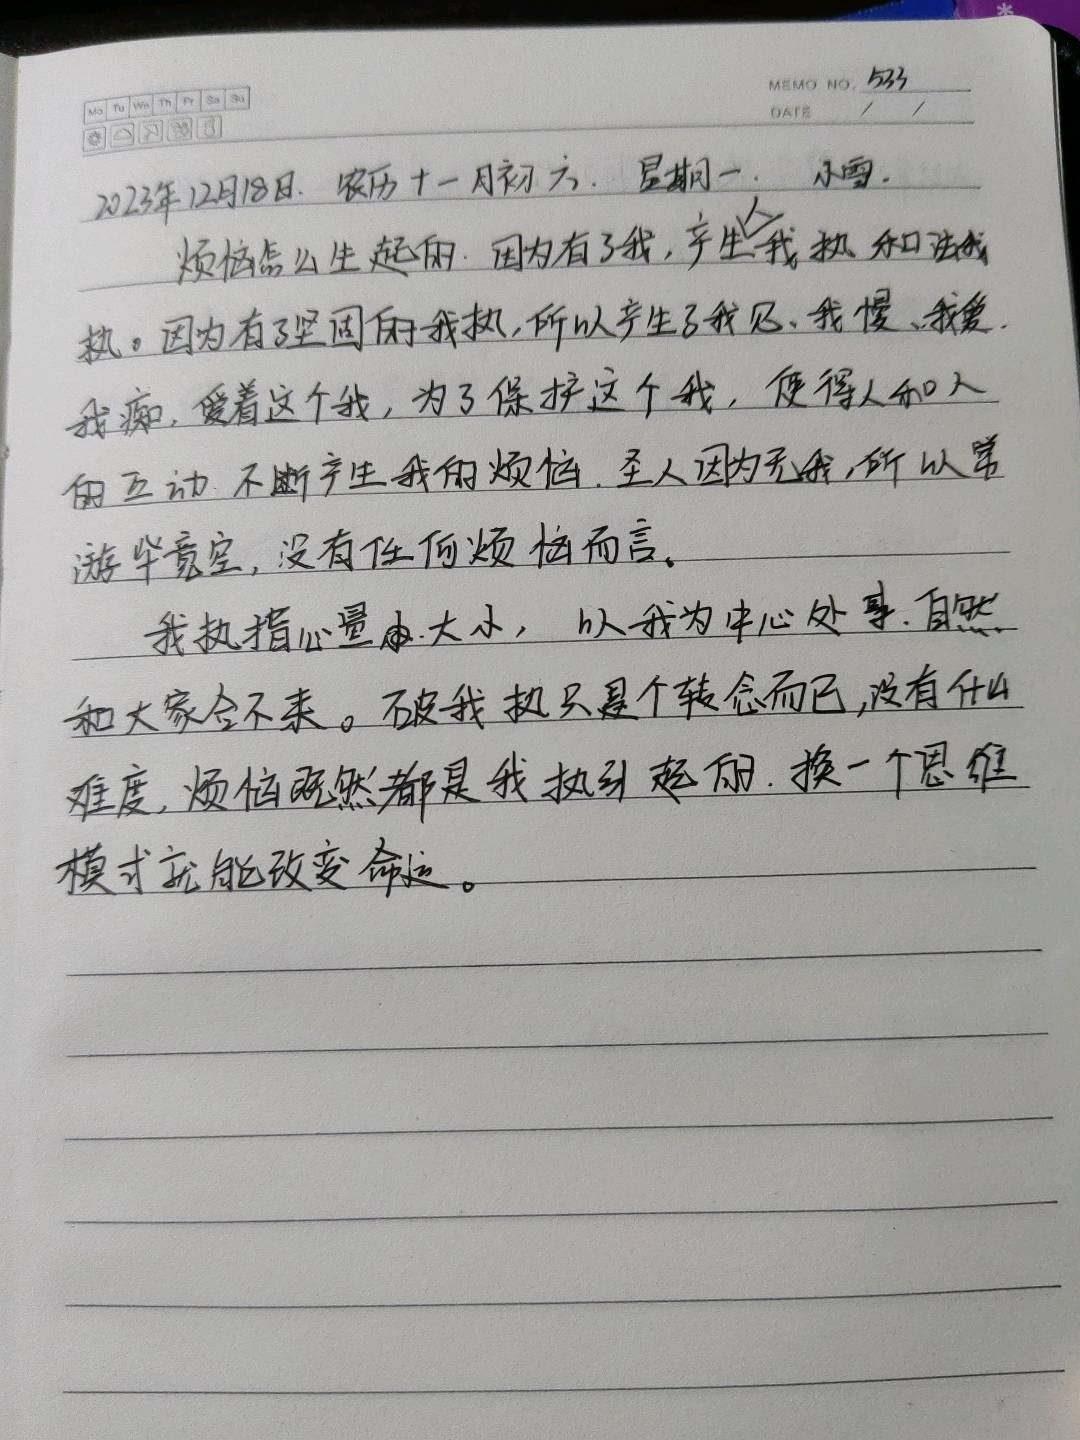 Mo Tu We Th Fr Sa Su
MEMO NO. 533
DATE / /
2023年12月18日. 农历十一月初六. 星期一. 小雪.
烦恼怎么生起的. 因为有了我, 产生人我执和法我
执。因为有了坚固的我执, 所以产生了我见、我慢、我爱.
我痴, 爱着这个我, 为了保护这个我, 使得人和人
的互动 不断产生我的烦恼. 圣人因为无我, 所以常
游毕竟空, 没有任何烦恼而言。
我执指心量 大小, 以我为中心处事. 自然
和大家合不来。破我执只是个转念而已, 没有什么
难度, 烦恼既然都是我执引起的. 换一个思维
模式就能改变命运。